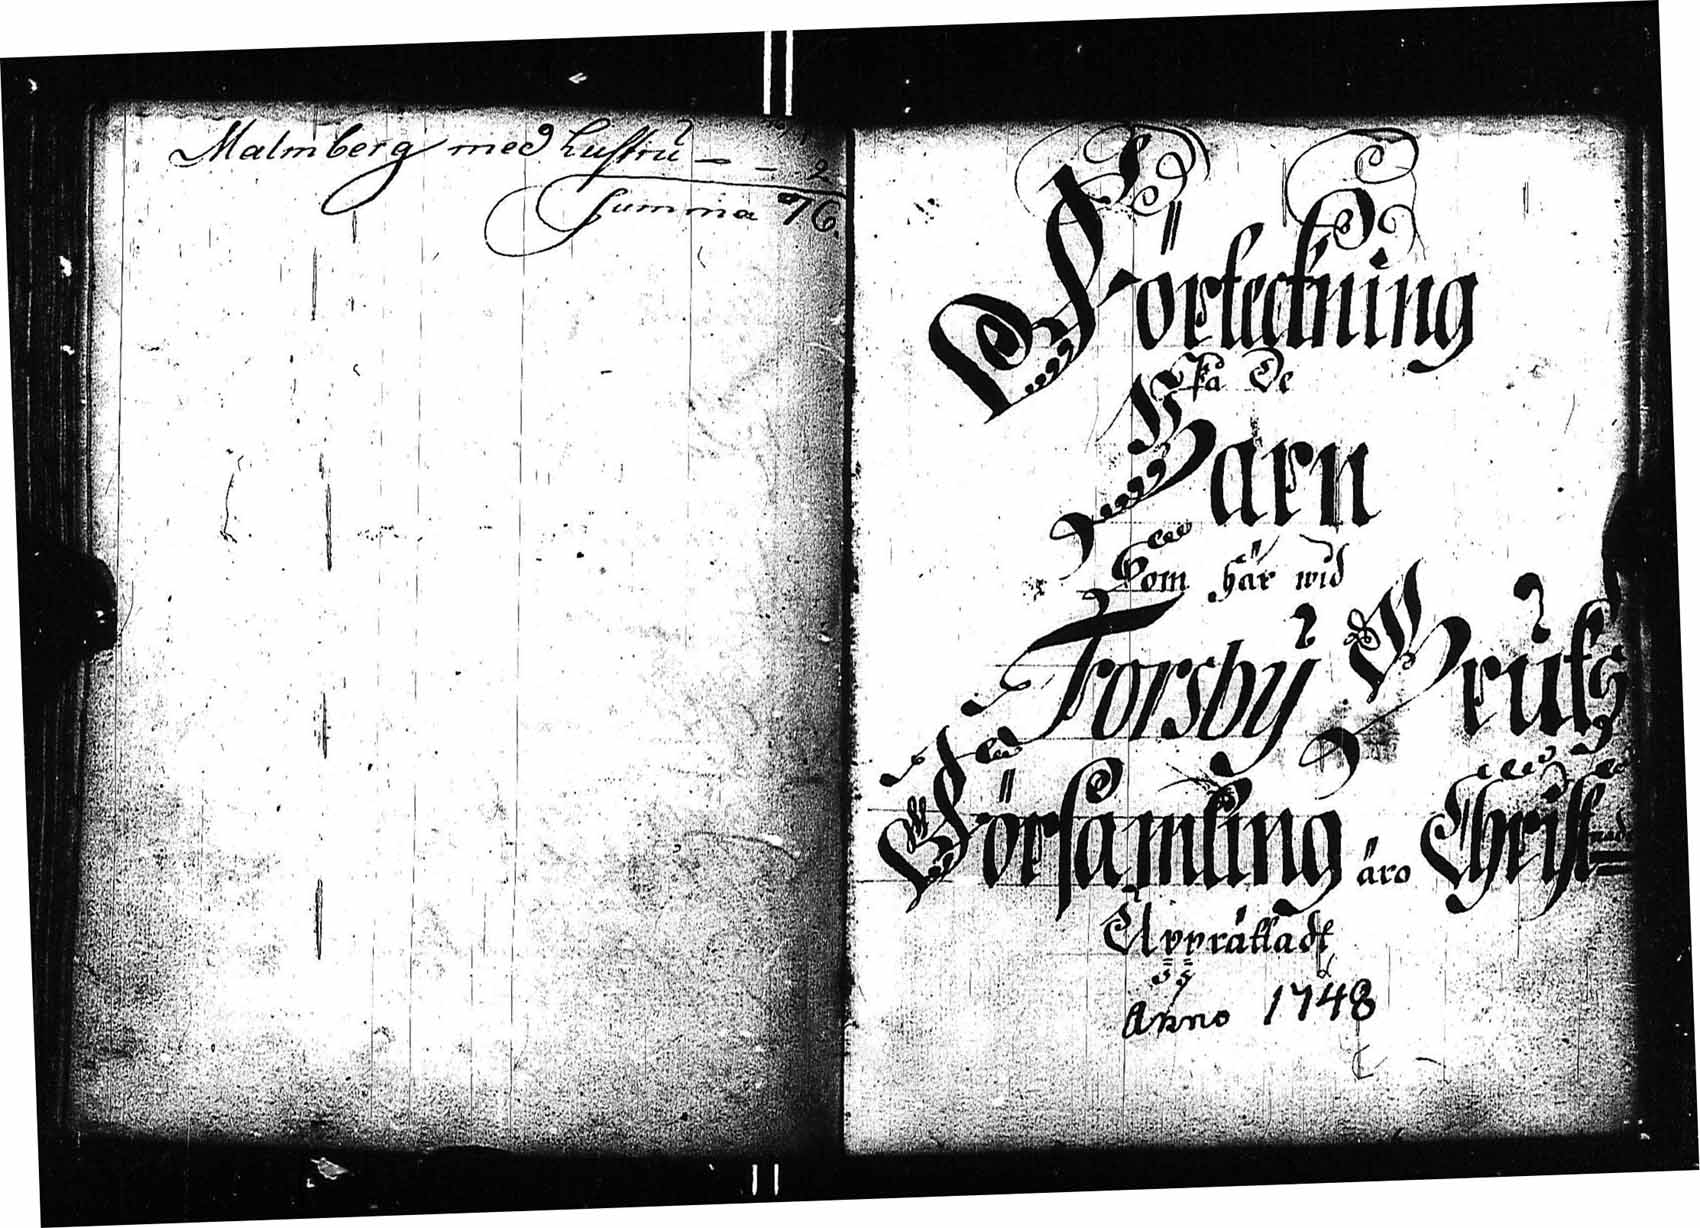 Malmberg med hustru - - 2
Summa 76.
Förteckning
På De
Barn
Som här wid
Forsby Bruks
Församling äro Christ
Upprättadt
Anno 1748